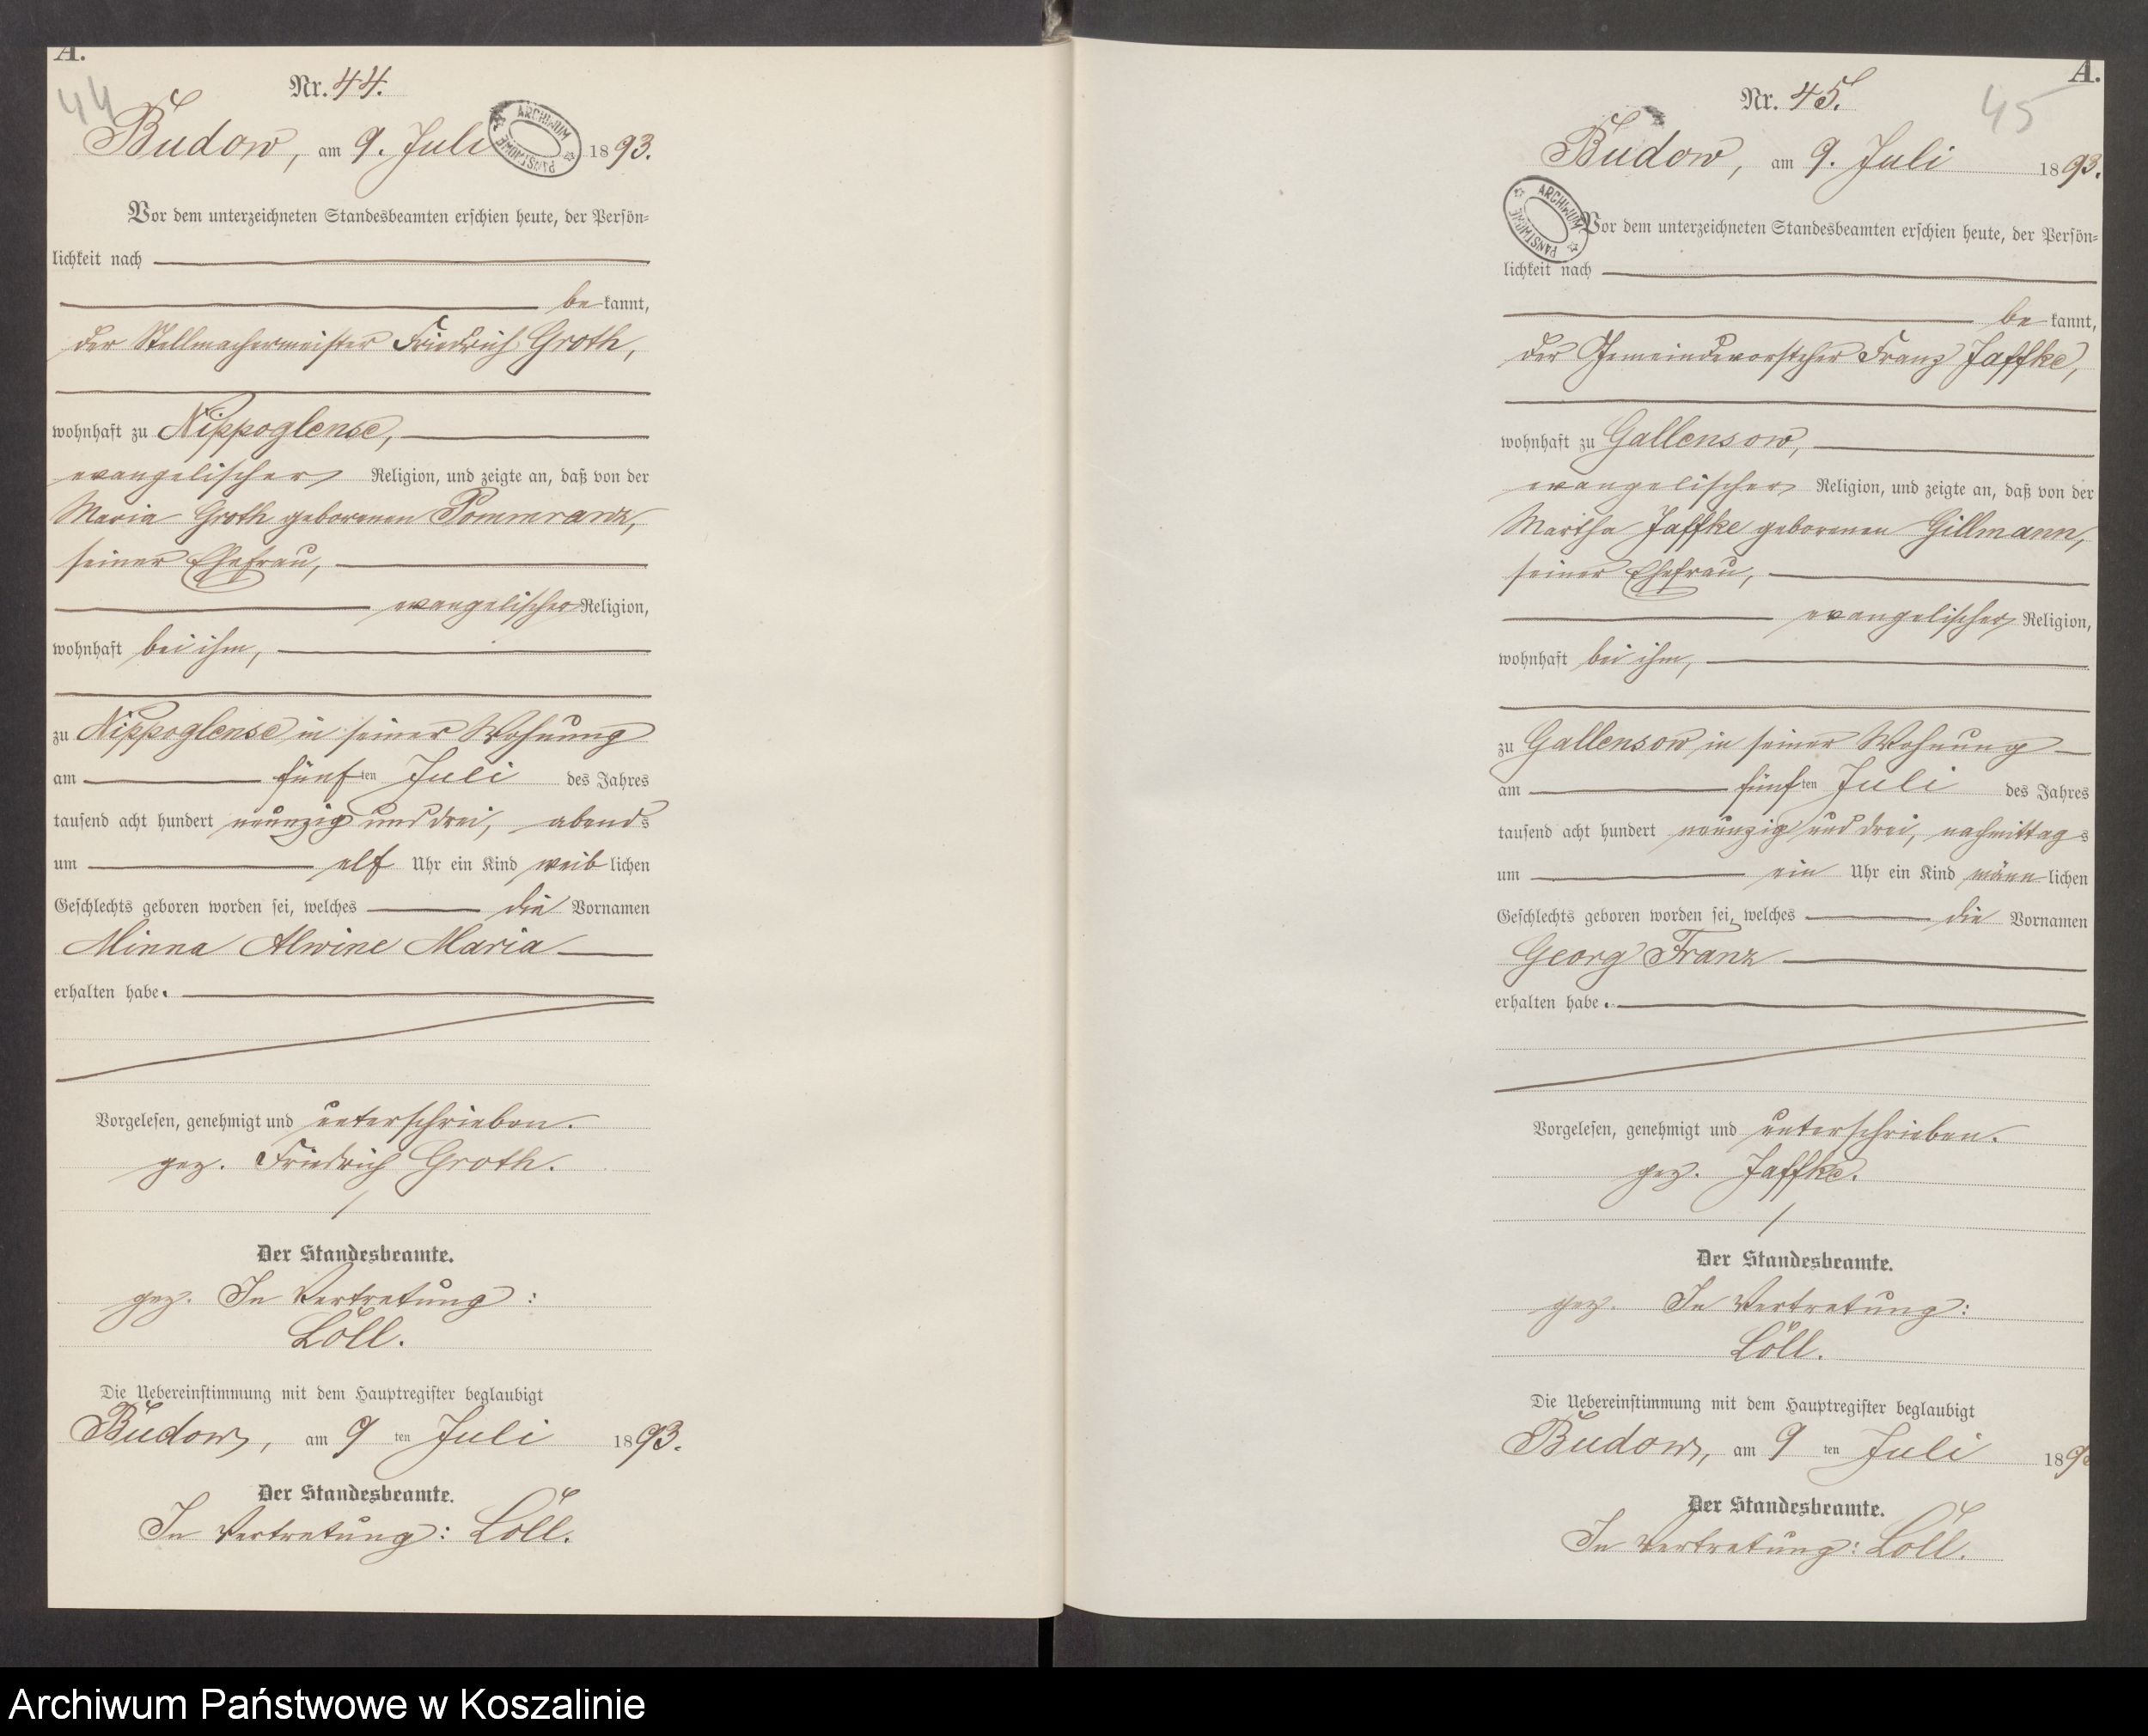 A.
44
Nr. 44.
Budow, am 9. Juli 1893.
ARCHIWUM PAŃSTWOWE
Vor dem unterzeichneten Standesbeamten erschien heute, der Persön-
lichkeit nach
bekannt,
der Stellmachermeister Friedrich Groth,
wohnhaft zu Nippoglense,
evangelischer Religion, und zeigte an, daß von der
Maria Groth geborenen Pommeranz,
seiner Ehefrau,
evangelischer Religion,
wohnhaft bei ihm,
zu Nippoglense in seiner Wohnung
am fünften Juli des Jahres
tausend acht hundert neunzig und drei, abends
um elf Uhr ein Kind weiblichen
Geschlechts geboren worden sei, welches die Vornamen
Minna Alwine Maria
erhalten habe.
Vorgelesen, genehmigt und unterschrieben.
gez. Friedrich Groth.
Der Standesbeamte.
gez. In Vertretung:
Löll.
Die Uebereinstimmung mit dem Hauptregister beglaubigt
Budow, am 9 ten Juli 1893.
Der Standesbeamte.
In Vertretung: Löll.
A.
45
Nr. 45.
Budow, am 9. Juli 1893.
ARCHIWUM PAŃSTWOWE
Vor dem unterzeichneten Standesbeamten erschien heute, der Persön-
lichkeit nach
bekannt,
der Gemeindevorsteher Franz Jaffke,
wohnhaft zu Gallensow,
evangelischer Religion, und zeigte an, daß von der
Martha Jaffke geborenen Gillmann,
seiner Ehefrau,
evangelischer Religion,
wohnhaft bei ihm,
zu Gallensow in seiner Wohnung
am fünften Juli des Jahres
tausend acht hundert neunzig und drei, nachmittags
um ein Uhr ein Kind männlichen
Geschlechts geboren worden sei, welches die Vornamen
Georg Franz
erhalten habe.
Vorgelesen, genehmigt und unterschrieben.
gez. Jaffke.
Der Standesbeamte.
gez. In Vertretung:
Löll.
Die Uebereinstimmung mit dem Hauptregister beglaubigt
Budow, am 9 ten Juli 189
Der Standesbeamte.
In Vertretung: Löll.
Archiwum Państwowe w Koszalinie